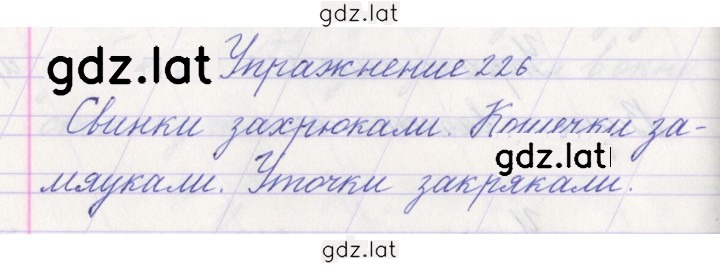 gdz.lat
gdz.lat Упражнение 226
Свинки захрюкали. Кошечки за-
gdz.lat
мяукали. Уточки закрякали.
gdz.lat